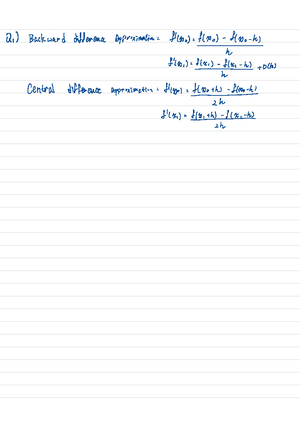 Q1) Backward difference approximation = f'(x₀) = (f(x₀) - f(x₀-h)) / h
f'(x₁) = (f(x₁) - f(x₁-h)) / h + O(h)
Central difference approximation = f'(x₀) = (f(x₀+h) - f(x₀-h)) / 2h
f'(x₁) = (f(x₁+h) - f(x₁-h)) / 2h